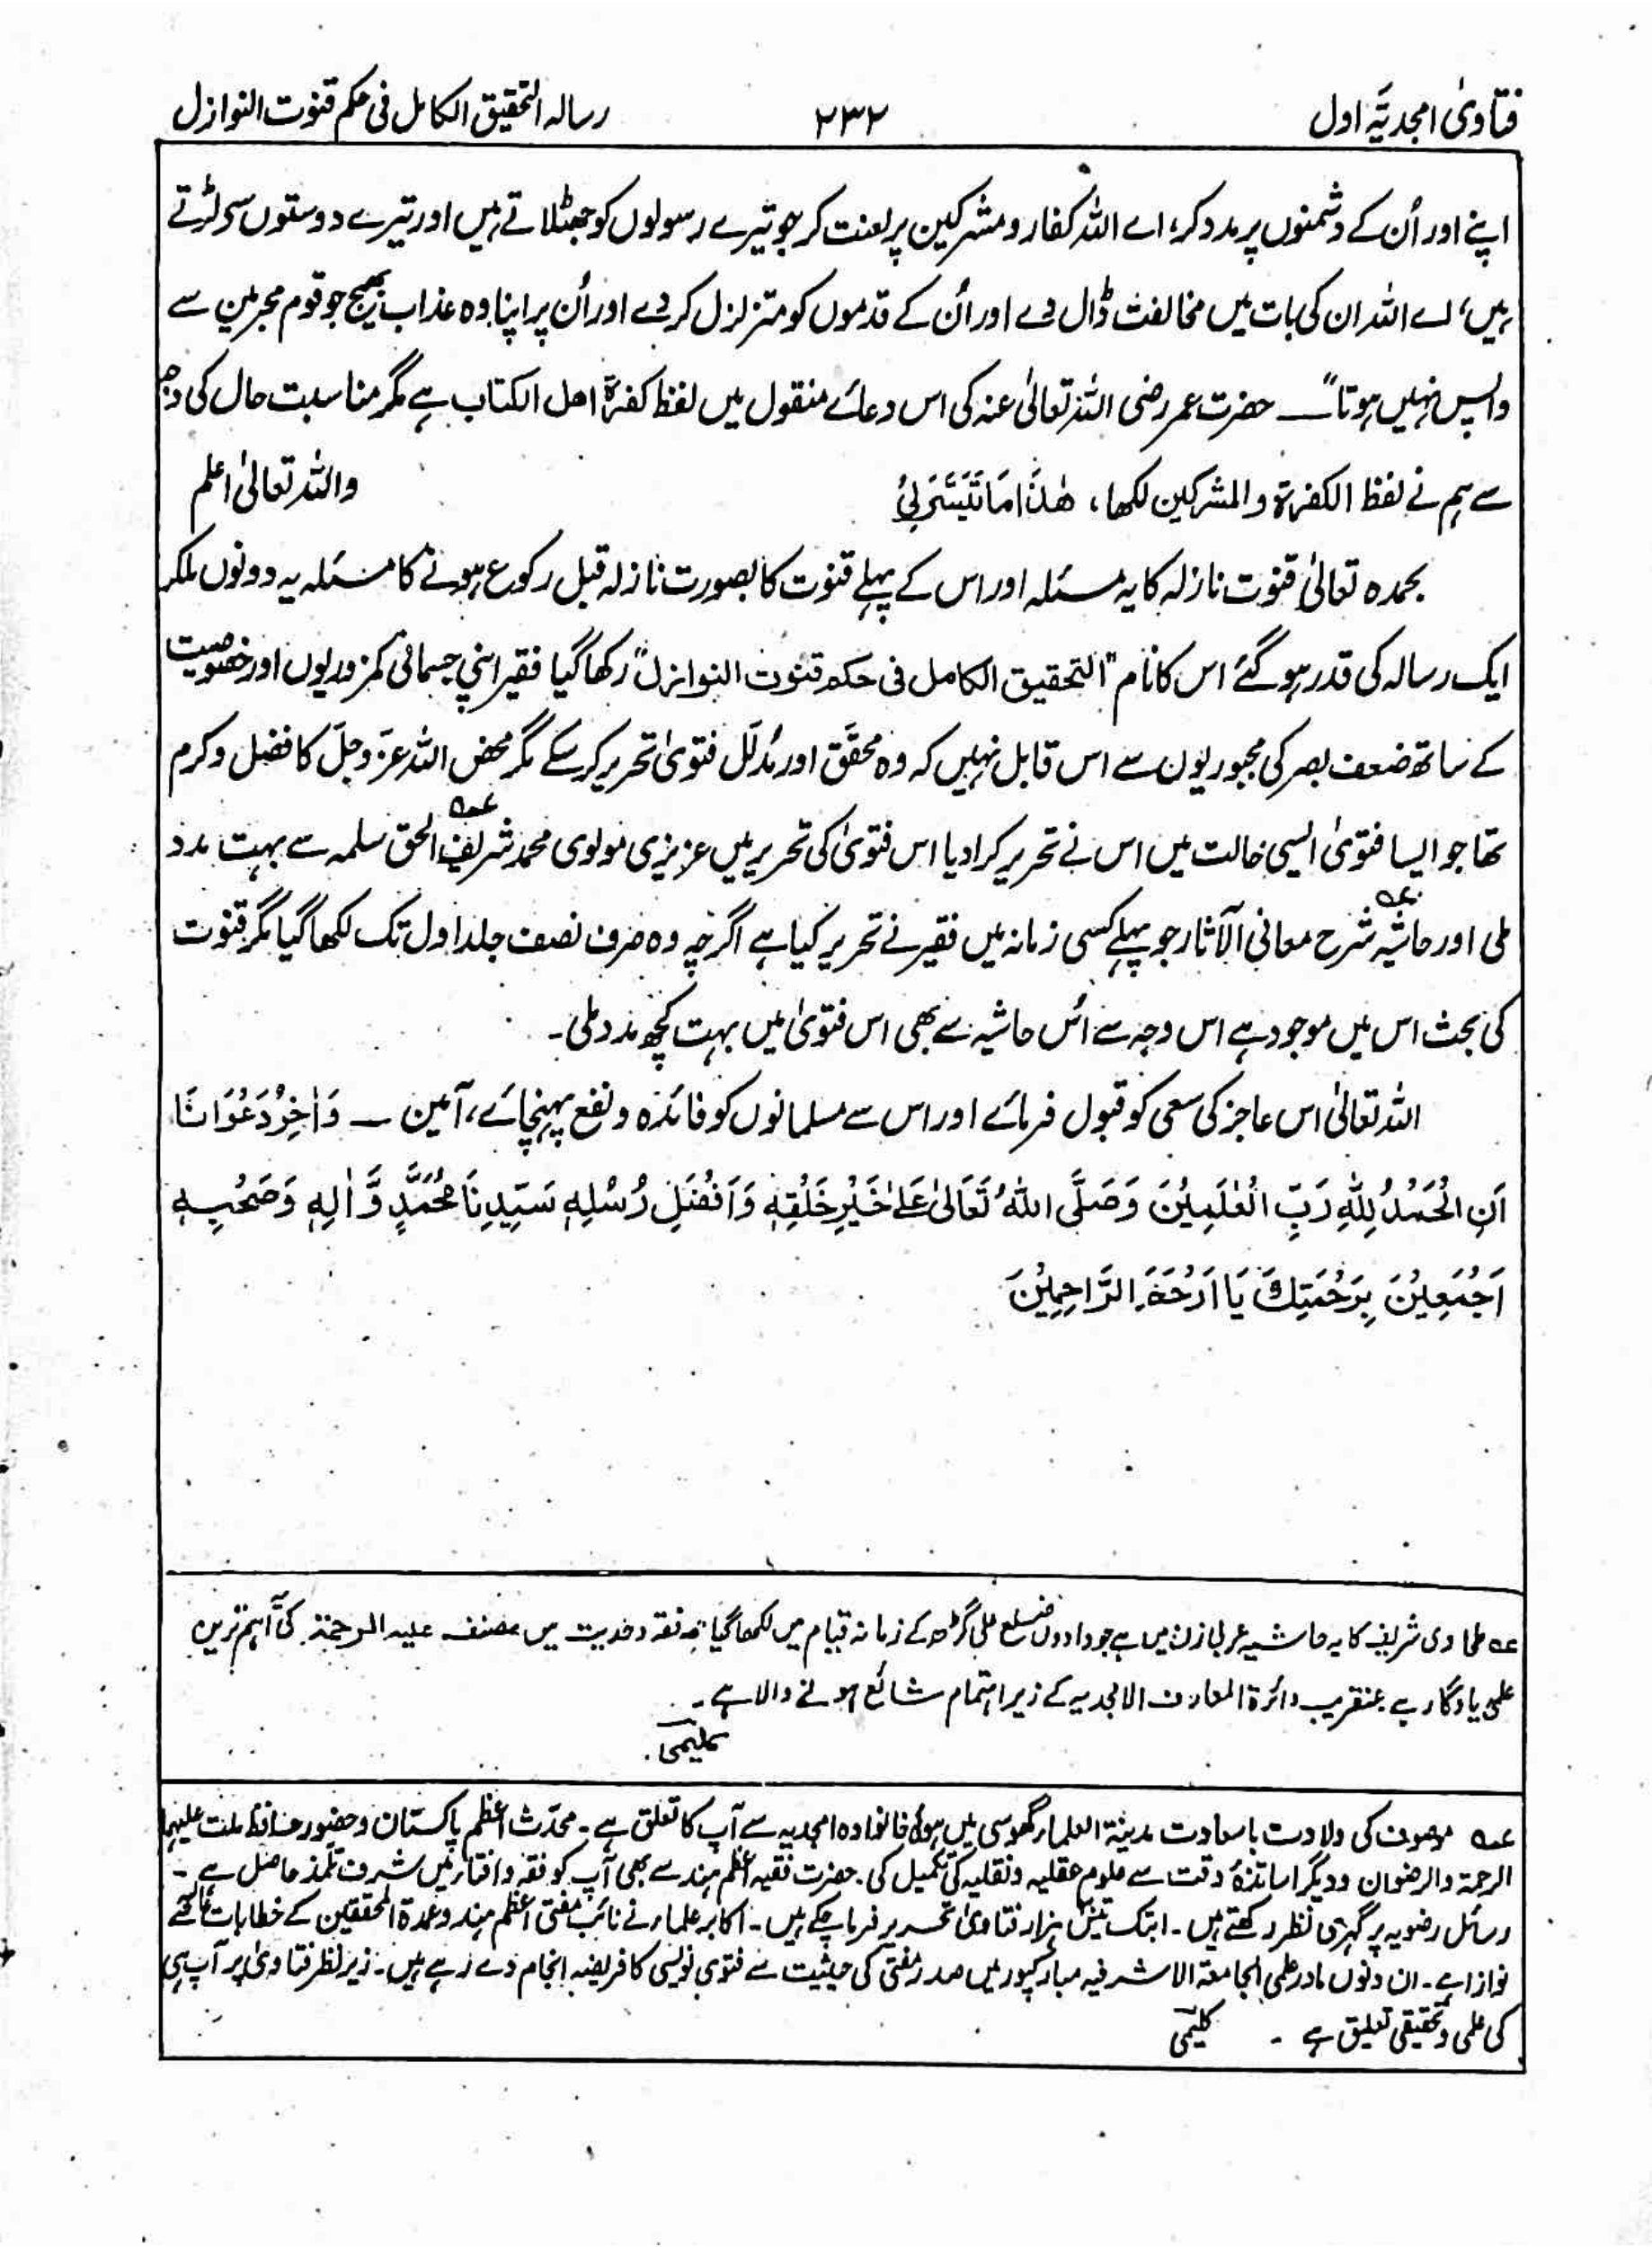 فتاویٰ امجدیَّہ اول
۲۳۲
رسالہ التحقیق الکامل فی حکم قنوت النوازل
اپنے اور اُن کے دشمنوں پر مدد کر، اے اللہ کفار و مشرکین پر لعنت کر جو تیرے رسولوں کو جھٹلاتے ہیں اور تیرے دوستوں سے لڑتے
ہیں، اے اللہ ان کی بات میں مخالفت ڈال دے اور اُن کے قدموں کو متزلزل کر دے اور اُن پر اپنا وہ عذاب بھیج جو قوم مجرمین سے
واپس نہیں ہوتا" — حضرت عمر رضی اللہ تعالیٰ عنہ کی اس دعائے منقول میں لفظ کفرۃ اھل الکتاب ہے مگر مناسبت حال کی وجہ
سے ہم نے لفظ الکفرۃ والمشرکین لکھا، ھٰذَا مَا تَیَسَّرَ لِیْ واللہ تعالیٰ اعلم
بحمدہ تعالیٰ قنوت نازلہ کا یہ مسئلہ اور اس کے پہلے قنوت کا بصورت نازلہ قبل رکوع ہونے کا مسئلہ یہ دونوں ملکر
ایک رسالہ کی قدر ہو گئے اس کا نام "التحقیق الکامل فی حکم قنوت النوازل" رکھا گیا فقیر اپنی جسمانی کمزوریوں اور خصوصیت
کے ساتھ ضعف بصر کی مجبوریوں سے اس قابل نہیں کہ وہ محقَّق اور مُدلَّل فتویٰ تحریر کرسکے مگر محض اللہ عزّوجلّ کا فضل و کرم
تھا جو ایسا فتویٰ ایسی حالت میں اس نے تحریر کرا دیا اس فتویٰ کی تحریر میں عزیزی مولوی محمد شریف الحق سلمہ سے بہت مدد
ملی اور حاشیہ شرح معانی الآثار جو پہلے کسی زمانہ میں فقیر نے تحریر کیا ہے اگرچہ وہ صرف نصف جلد اول تک لکھا گیا مگر قنوت
کی بحث اس میں موجود ہے اس وجہ سے اُس حاشیہ سے بھی اس فتویٰ میں بہت کچھ مدد ملی۔
اللہ تعالیٰ اس عاجز کی سعی کو قبول فرمائے اور اس سے مسلمانوں کو فائدہ و نفع پہنچائے، آمین — وَاٰخِرُ دَعْوَانَا
اَنِ الْحَمْدُ لِلّٰہِ رَبِّ الْعٰلَمِیْنَ وَصَلَّی اللہُ تَعَالیٰ عَلیٰ خَیْرِ خَلْقِہٖ وَاَفْضَلِ رُسُلِہٖ سَیِّدِنَا مُحَمَّدٍ وَّاٰلِہٖ وَصَحْبِہٖ
اَجْمَعِیْنَ بِرَحْمَتِكَ یَا اَرْحَمَ الرَّاحِمِیْنَ
عہ طحاوی شریف کا یہ حاشیہ عربی زبان میں ہے جو دادوں ضلع علی گڑھ کے زمانہ قیام میں لکھا گیا یہ فقہ و حدیث میں مصنف علیہ الرحمۃ کی اہم ترین
علمی یادگار ہے عنقریب دائرۃ المعارف الامجدیہ کے زیر اہتمام شائع ہونے والا ہے۔
کلیمی
عہ موصوف کی ولادت باسعادت مدینۃ العلماء گھوسی میں ہوئی خانوادہ امجدیہ سے آپ کا تعلق ہے۔ محدّث اعظم پاکستان و حضور حافظ ملت علیہما
الرحمۃ والرضوان و دیگر اساتذۂ وقت سے علوم عقلیہ و نقلیہ کی تکمیل کی۔ حضرت فقیہ اعظم ہند سے بھی آپ کو فقہ و افتاء میں شرف تلمذ حاصل ہے۔
رسائل رضویہ پر گہری نظر رکھتے ہیں۔ ابتک ہزار فتاویٰ تحریر فرما چکے ہیں۔ اکابر علماء نے نائب مفتی اعظم ہند و عمدۃ المحققین کے خطابات عالیہ سے
نوازا ہے۔ ان دنوں مادر علمی الجامعۃ الاشرفیہ مبارکپور میں صدر مفتی کی حیثیت سے فتوی نویسی کا فریضہ انجام دے رہے ہیں۔ زیر نظر فتاویٰ پر آپ ہی
کی علمی و تحقیقی تعلیق ہے۔ کلیمی